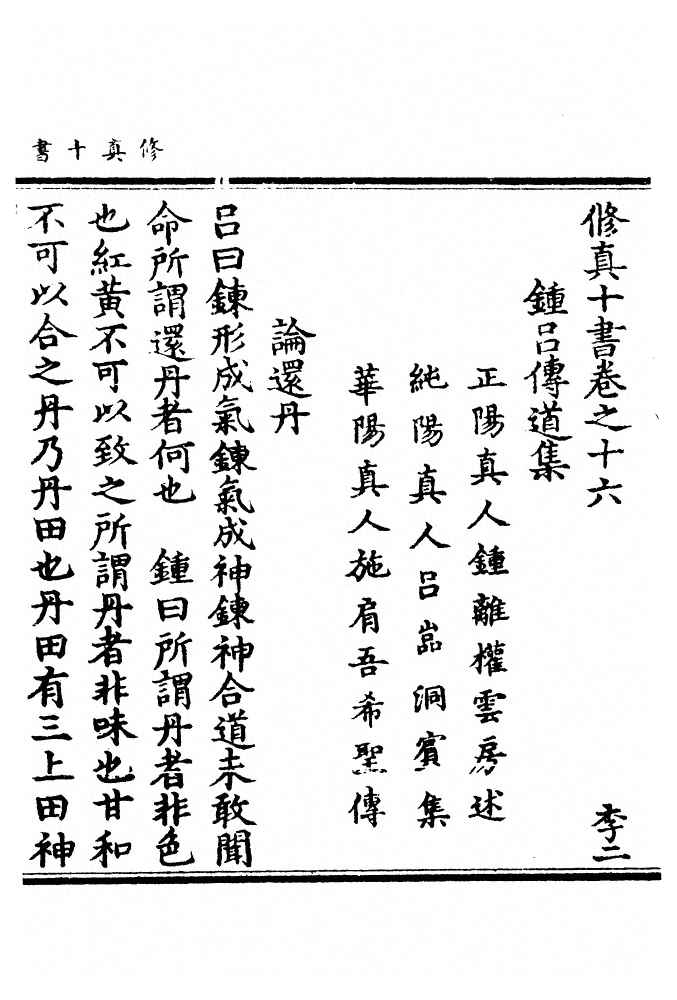 修真十書
修真十書卷之十六 李二
鍾呂傳道集
正陽真人鍾離權雲房述
純陽真人呂嵓洞賓集
華陽真人施肩吾希聖傳
論還丹
呂曰鍊形成氣鍊氣成神鍊神合道未敢聞
命所謂還丹者何也 鍾曰所謂丹者非色
也紅黃不可以致之所謂丹者非味也甘和
不可以合之丹乃丹田也丹田有三上田神